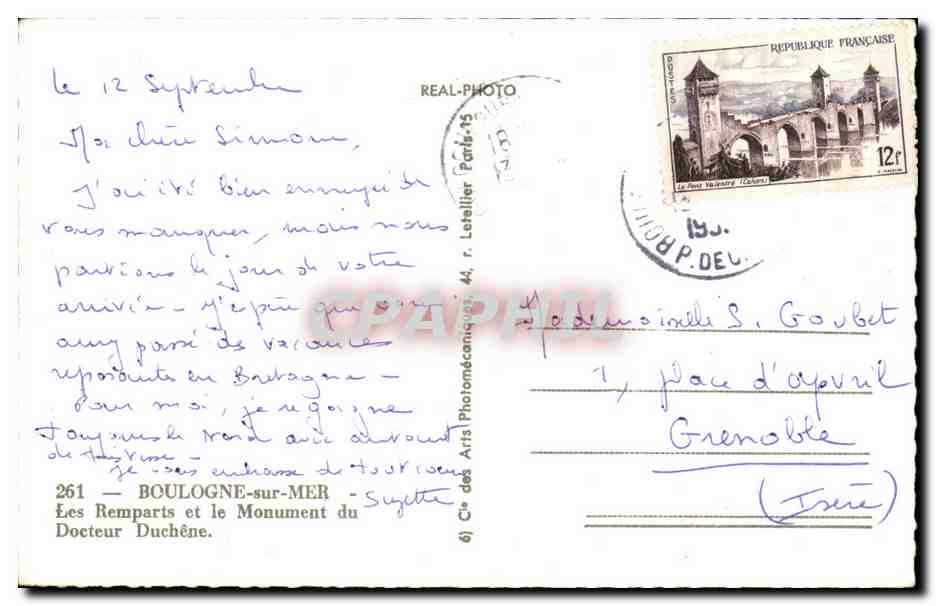 le 12 Septembre
Ma chère Simone,
J'ai été bien ennuyée de
vous manquer, mais nous
partions le jour de votre
arrivée - J'espère que vous
avez passé des vacances
reposantes en Bretagne -
Pour moi, je regagne
toujours le Nord avec autant
de tristesse -
je vous embrasse de tout coeur
Suzette
261 — BOULOGNE-sur-MER -
Les Remparts et le Monument du
Docteur Duchêne.
REAL-PHOTO
6) Cie des Arts Photomécaniques, 44, r. Letellier Paris-15
REPUBLIQUE FRANÇAISE
POSTES
12f
Le Pont Valentré (Cahors)
195.
P. DE C.
CPAPHIL
Mademoiselle S. Goubet
1, place d'Apvril
Grenoble
(Isère)